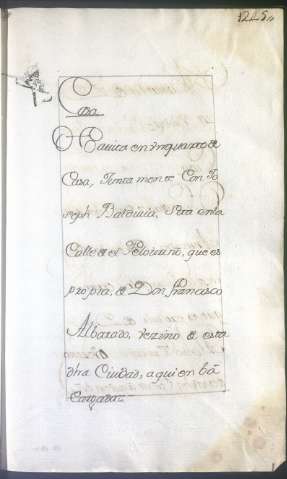 1245,,
Casa
Havita en vn quarto de
Casa, Junta mente Con Jo
seph Baldivia, Sita en la
Calle de el que es
propria, de Don francisco
Albarado, Vezino de esta
dha Ciudad, a qui en
Cargada